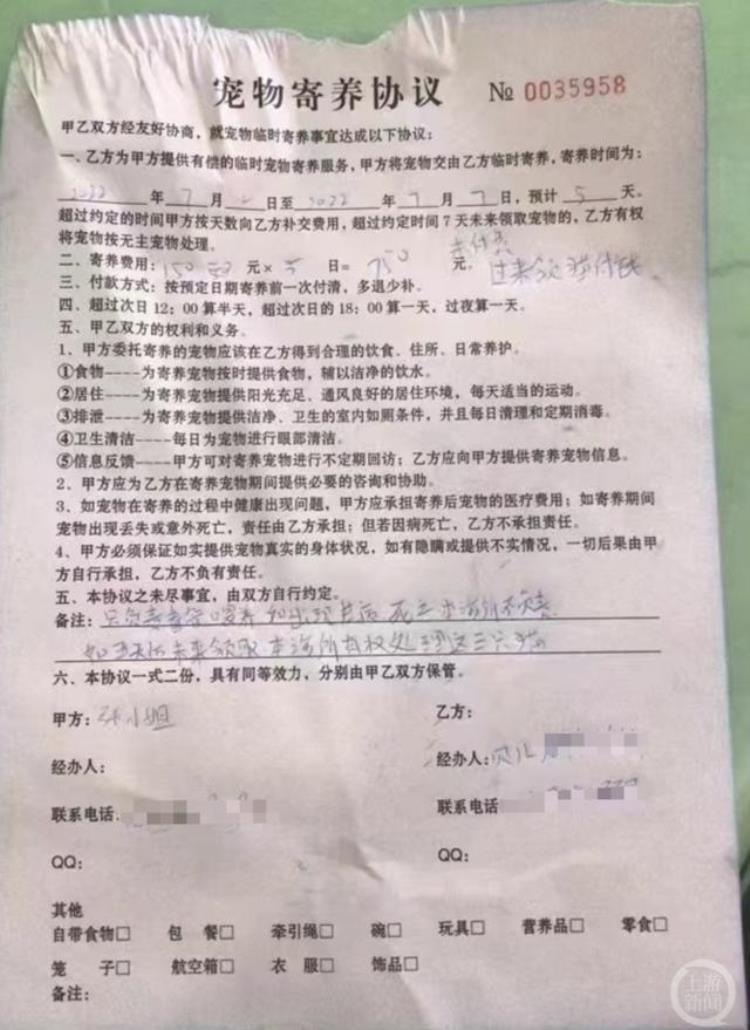 宠物寄养协议 № 0035958
甲乙双方经友好协商，就宠物临时寄养事宜达成以下协议：
一、乙方为甲方提供有偿的临时宠物寄养服务，甲方将宠物交由乙方临时寄养，寄养时间为：
2022 年 7 月 日至 2022 年 7 月 7 日，预计 5 天。
超过约定的时间甲方按天数向乙方补交费用，超过约定时间7天未来领取宠物的，乙方有权
将宠物按无主宠物处理。
未付款
二、寄养费用：150 元× 5 日= 750 元。过来领猫付钱
三、付款方式：按预定日期寄养前一次付清，多退少补。
四、超过次日12：00算半天，超过次日的18：00算一天，过夜算一天。
五、甲乙双方的权利和义务。
1、甲方委托寄养的宠物应该在乙方得到合理的饮食、住所、日常养护。
①食物----为寄养宠物按时提供食物，辅以洁净的饮水。
②居住----为寄养宠物提供阳光充足、通风良好的居住环境，每天适当的运动。
③排泄----为寄养宠物提供洁净、卫生的室内如厕条件，并且每日清理和定期消毒。
④卫生清洁----每日为宠物进行眼部清洁。
⑤信息反馈----甲方可对寄养宠物进行不定期回访；乙方应向甲方提供寄养宠物信息。
2、甲方应为乙方在寄养宠物期间提供必要的咨询和协助。
3、如宠物在寄养的过程中健康出现问题，甲方应承担寄养后宠物的医疗费用；如寄养期间
宠物出现丢失或意外死亡，责任由乙方承担；但若因病死亡，乙方不承担责任。
4、甲方必须保证如实提供宠物真实的身体状况，如有隐瞒或提供不实情况，一切后果由甲
方自行承担，乙方不负有责任。
五、本协议之未尽事宜，由双方自行约定。
备注：只负责喂养 如出现生病 死亡 本诊所不负责
如 天后未来领取 本诊所有权处理这三只猫
六、本协议一式二份，具有同等效力，分别由甲乙双方保管。
甲方：张小姐 乙方：
经办人： 经办人：贝儿
联系电话： 联系电话
QQ： QQ：
其他
自带食物□ 包 餐□ 牵引绳□ 碗□ 玩具□ 营养品□ 零食□
笼 子□ 航空箱□ 衣 服□ 饰品□
备注：
上游新闻